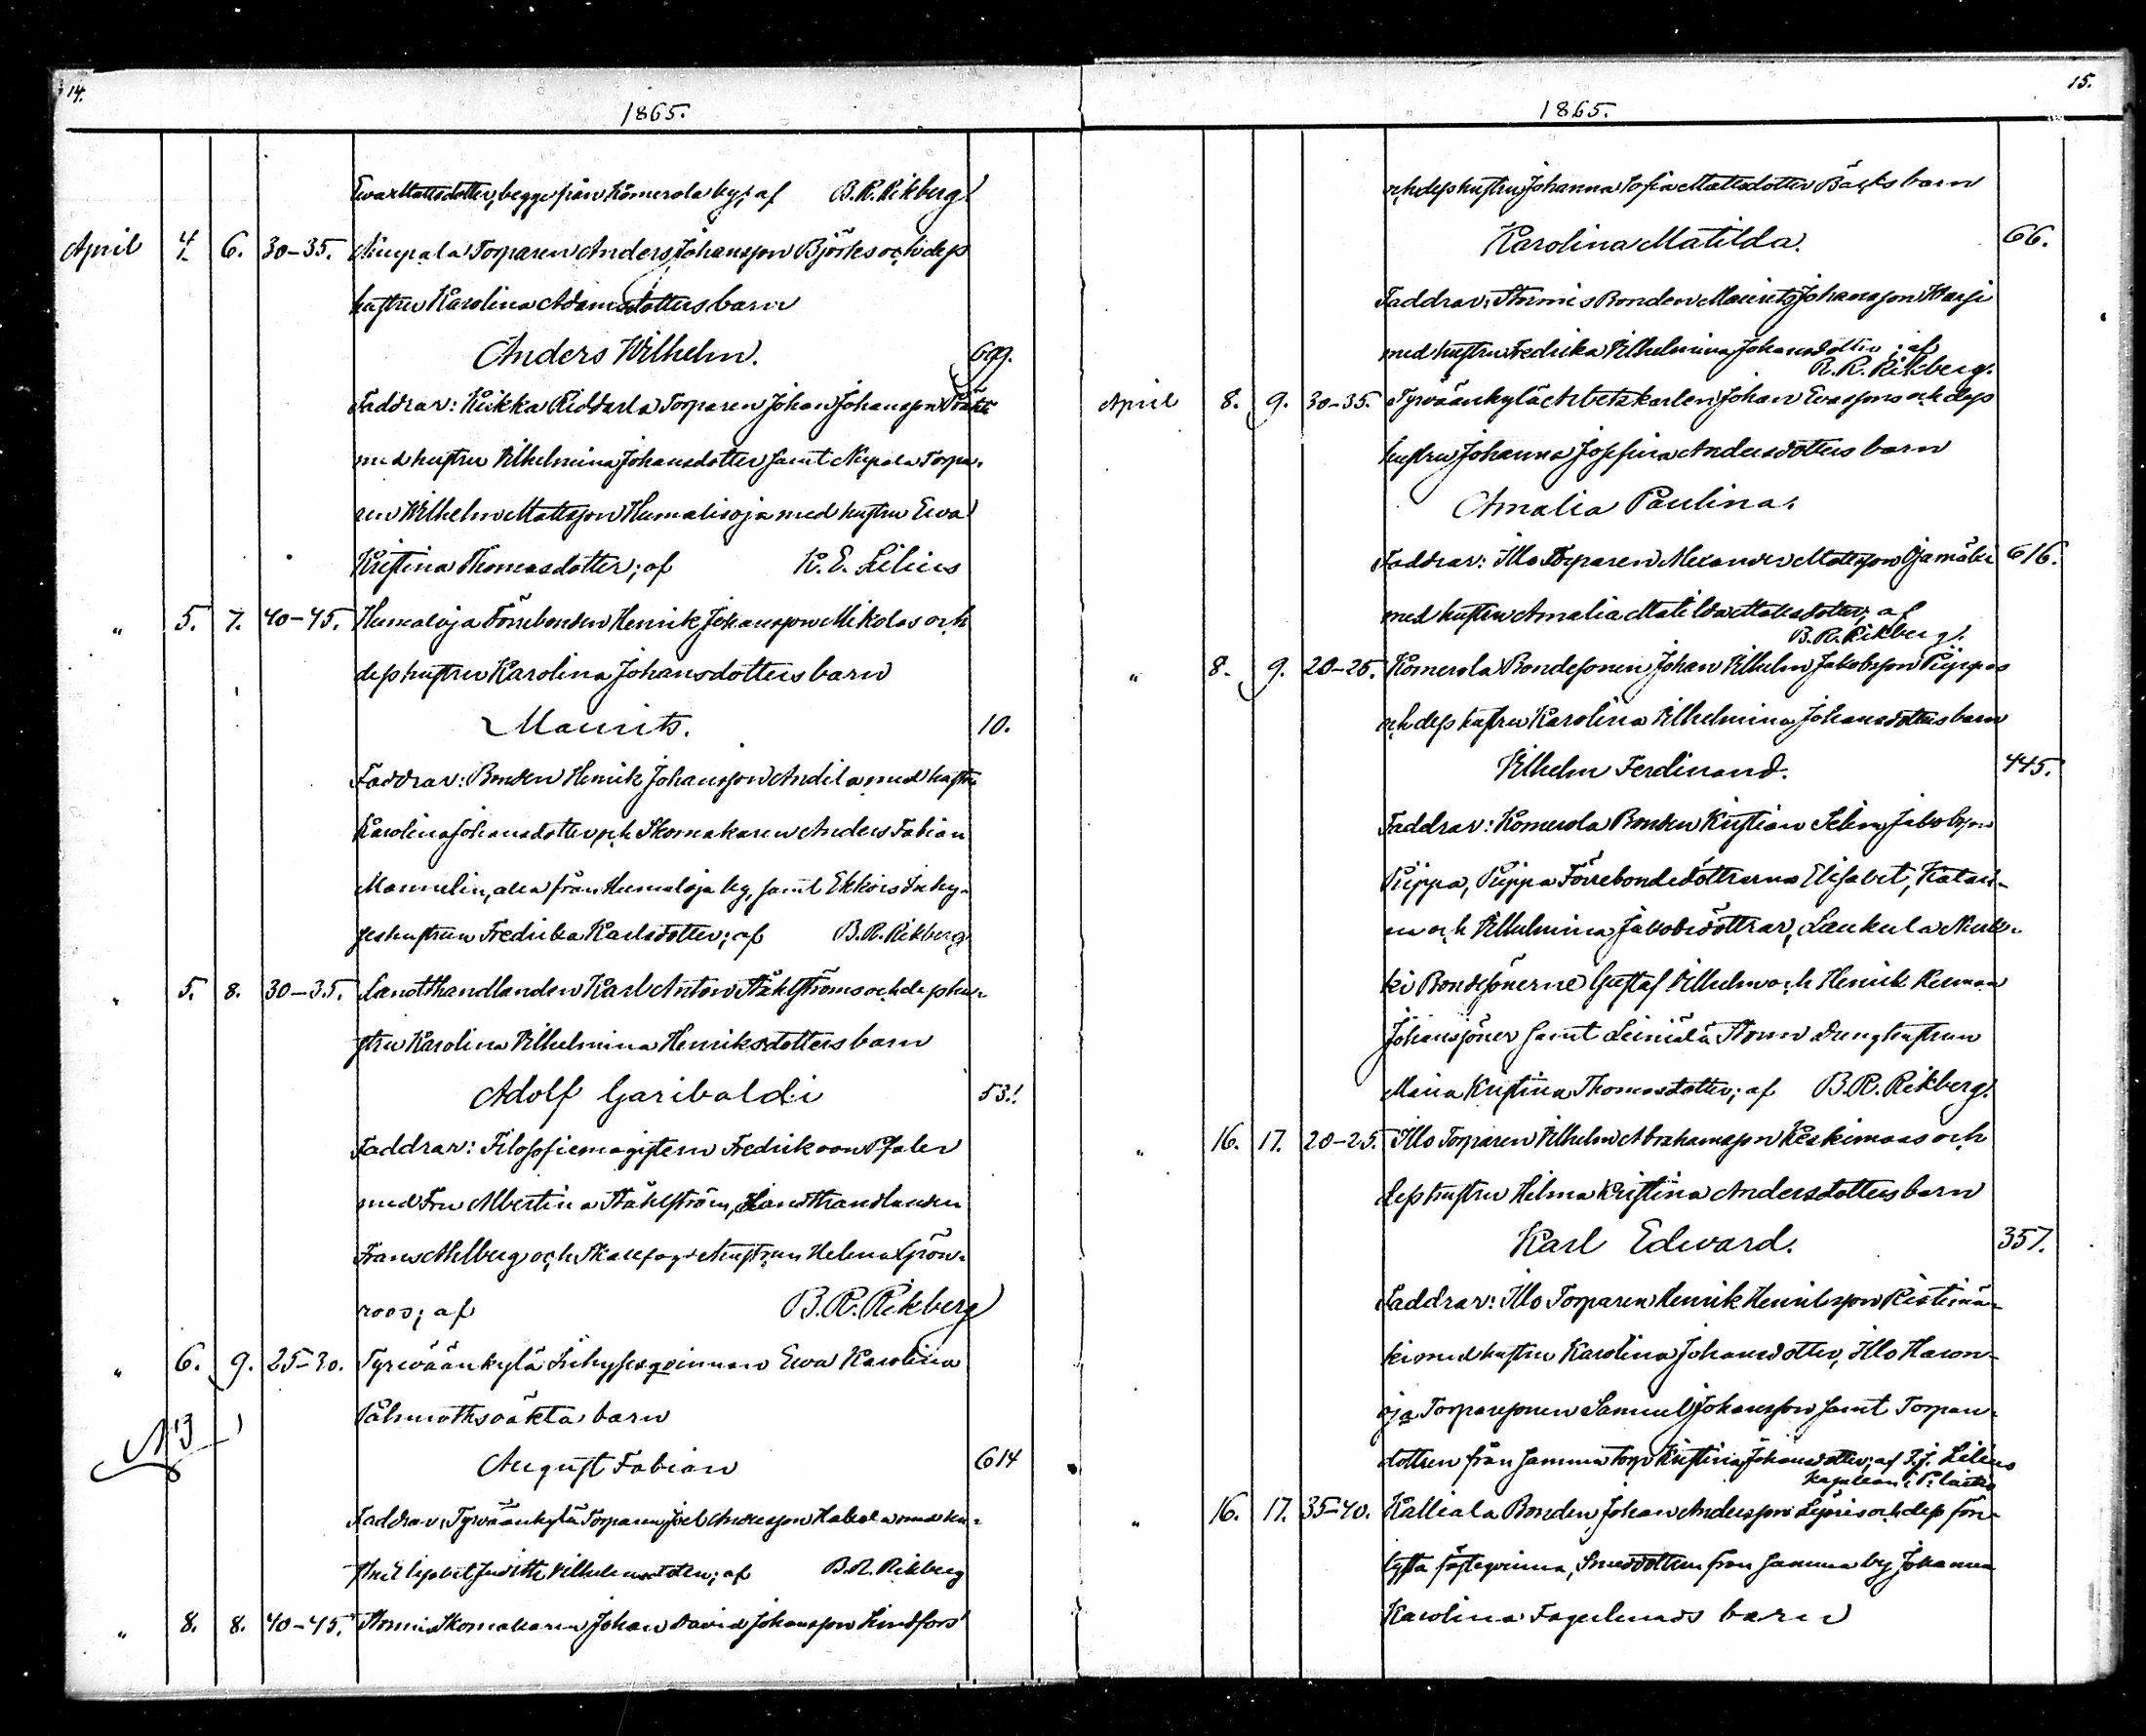 14.
1865.
Ewa Mattsdotter, begge från Komerola by; af B. R. Rikberg
April 4. 6. 30-35. Nuupala Torparen Anders Johansson Björles och dess
hustru Karolina Adamsdotters barn
Anders Wilhelm. 699.
Faddrar: Kiikka Riddarla Torparen Johan Johansson
med hustru Vilhelmina Johansdotter samt Nupala Torpa-
ren Wilhelm Mattsson Humalisoja med hustru Ewa
Kristina Thomasdotter; af K. E. Lilius
" 5. 7. 40-45. Humaloja Förrebonden Henrik Johansson Mikolas och
dess hustru Karolina Johansdotters barn
Maurits. 10.
Faddrar: Bonden Henrik Johansson Andila med hustru
Karolina Johansdotter och Skomakaren Anders Fabian
Mannelin, alla från Humaloja by, samt Ekkois Inhy-
seshustrun Fredrika Karlsdotter; af B. R. Rikberg
" 5. 8. 30-35. Landthandlanden Karl Anton Ståhlströms och dess hu-
stru Karolina Vilhelmina Henriksdotters barn
Adolf Garibaldi 53!.
Faddrar: Filosofiemagistern Fredrik von Pfaler
med Fru Albertina Ståhlström, Landthandlanden
Frans Ahlberg och hustrun Helena Grön-
roos; af B. R. Rikberg
" 6. 9. 25-30. Tyrväänkylä Inhysesqvinnan Ewa Karolina
Pålmoths oäkta barn
NB
August Fabian 614
Faddrar: Tyrväänkylä Torparen Joel Andersson Hakala med hu-
stru Elisabet Judith Vilhelmsdotter; af B. R. Rikberg
" 8. 8. 40-45. Stormi Skomakaren Johan David Johansson Lindfors
15.
1865.
och dess hustru Johanna Sofia Mattsdotter Bäcks barn
Karolina Matilda. 66.
Faddrar: Stormis Bonden Maurits Johansson Warsi
med hustru Fredrika Vilhelmina Johansdotter; af
B. R. Rikberg.
April 8. 9. 30-35. Tyrväänkylä Arbetskarlen Johan Evassons och dess
hustru Johanna Josefina Andersdotters barn
Amalia Paulina.
Faddrar: Illo Torparen Alexander Mattsson Ojamäki 616.
med hustru Amalia Matilda Mattsdotter; af
B. R. Rikberg.
" 8. 9. 20-25. Komerola Bondesonen Johan Vilhelm Jakobsson Piippas
och dess hustru Karolina Vilhelmina Johansdotters barn
Vilhelm Ferdinand. 445.
Faddrar: Komerola Bonden Kristian Selim Jakobsson
Piippa, Piippa Förrebondedöttrarna Elisabet, Katari-
na och Vilhelmina Jakobsdöttrar, Laukula
ki Bondsönerne Gustaf Vilhelm och Henrik Herman
Johanssöner samt Leiniälä Storm Drenghustrun
Maria Kristina Thomasdotter; af B. R. Rikberg.
" 16. 17. 20-25. Illo Torparen Vilhelm Abrahamsson Keskimaas och
dess hustru Helma Kristina Andersdotters barn
Karl Edvard. 357.
Faddrar: Illo Torparen Henrik Henriksson Ristimä-
ki med hustru Karolina Johansdotter, Illo Haron-
oja Torparesonen Samuel Johansson samt Torpar-
dottren från samma torp Kristina Johansdotter; af F. J. Lilius
Kapellan i
" 16. 17. 35-40. Kalliala Bonden Johan Andersson och dess för-
lofta fästeqvinna, Smeddottren från samma by Johanna
Karolina Fagerlunds barn